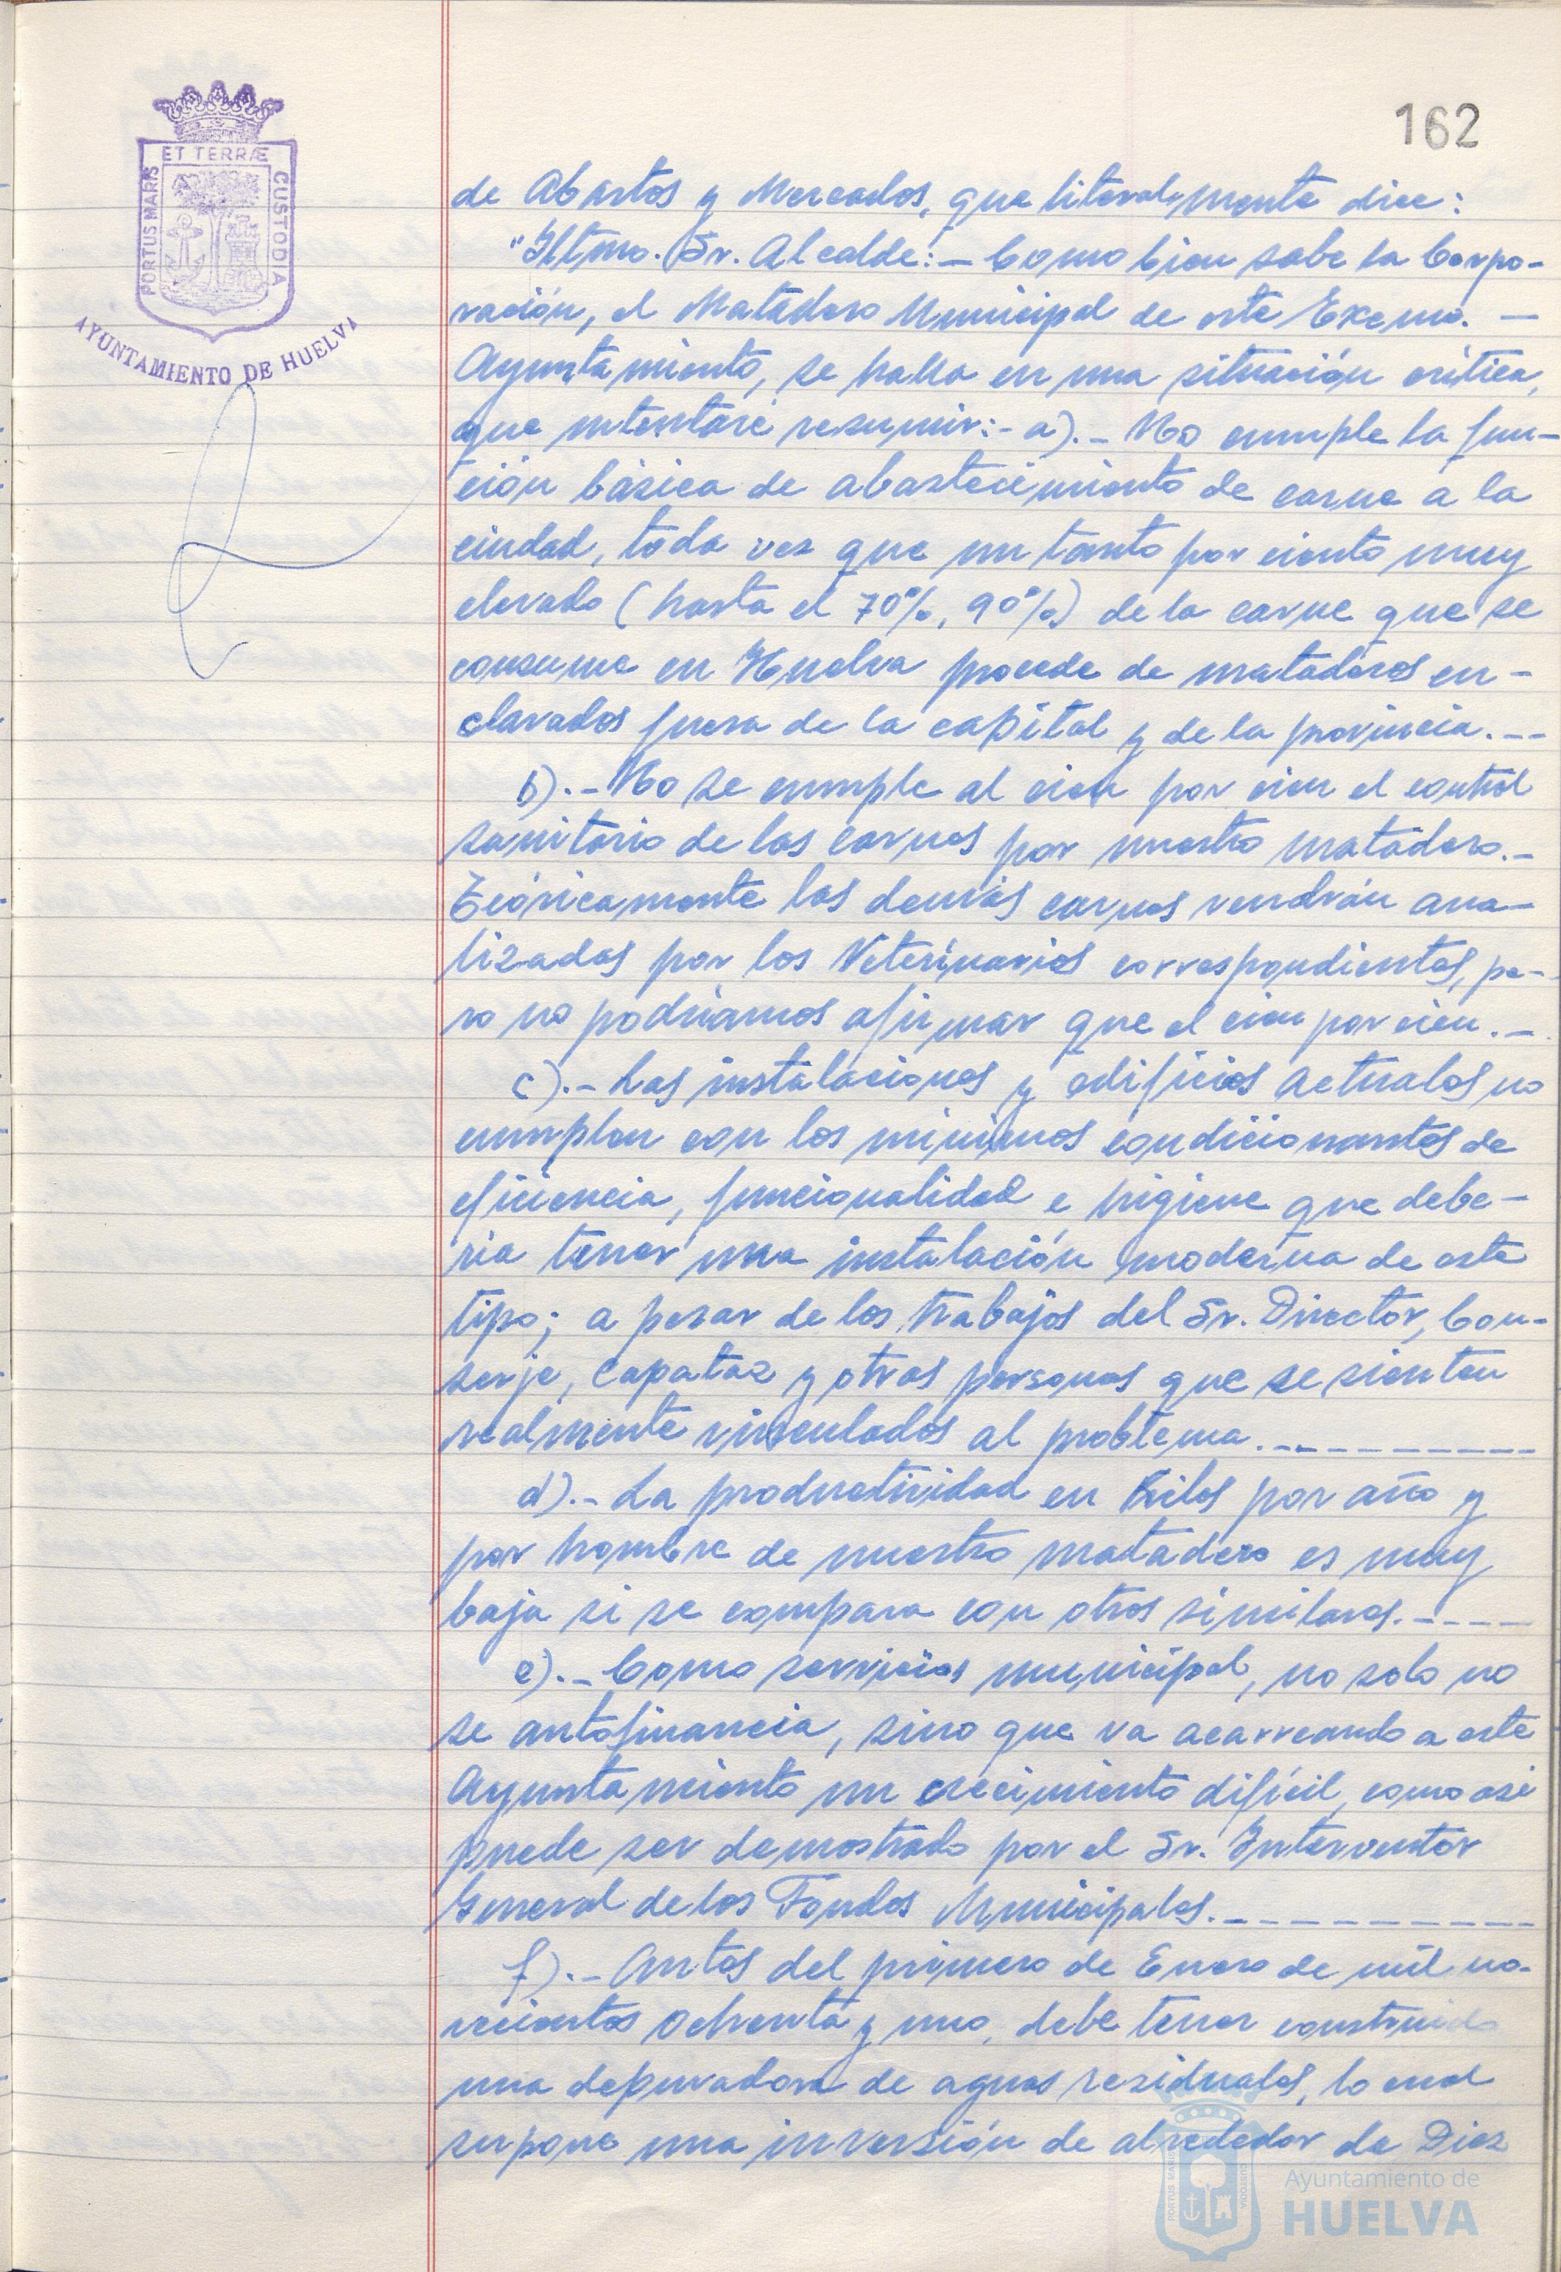 162
ET TERRÆ
PORTUS MARIS
CUSTODIA
AYUNTAMIENTO DE HUELVA
de Abastos y Mercados, que literalmente dice:
"Iltmo. Sr. Alcalde:- Como bien sabe la Corpo-
ración, el Matadero Municipal de este Excmo. -
Ayuntamiento, se halla en una situación crítica,
que intentaré resumir:- a).- No cumple la fun-
ción básica de abastecimiento de carne a la
ciudad, toda vez que un tanto por ciento muy
elevado (hasta el 70%, 90%) de la carne que se
consume en Huelva procede de mataderos en-
clavados fuera de la capital y de la provincia.--
b).- No se cumple al cien por cien el control
sanitario de las carnes por nuestro matadero.-
Teóricamente las demás carnes vendrán ana-
lizadas por los Veterinarios correspondientes, pe-
ro no podríamos afirmar que el cien por cien.-
c).- Las instalaciones y edificios actuales no
cumplen con los mínimos condicionantes de
eficiencia, funcionalidad e higiene que debe-
ría tener una instalación moderna de este
tipo; a pesar de los trabajos del Sr. Director, Con-
serje, Capataz y otras personas que se sienten
realmente vinculados al problema.----------
d).- La productividad en Kilos por año y
por hombre de nuestro matadero es muy
baja si se compara con otros similares.-----
e).- Como servicios municipal, no solo no
se autofinancia, sino que va acarreando a este
Ayuntamiento un crecimiento difícil, como así
puede ser demostrado por el Sr. Interventor
General de los Fondos Municipales.----------
f).- Antes del primero de Enero de mil no-
vecientos ochenta y uno, debe tener construida
una depuradora de aguas residuales, lo cual
supone una inversión de alrededor de Diez
Ayuntamiento de
HUELVA